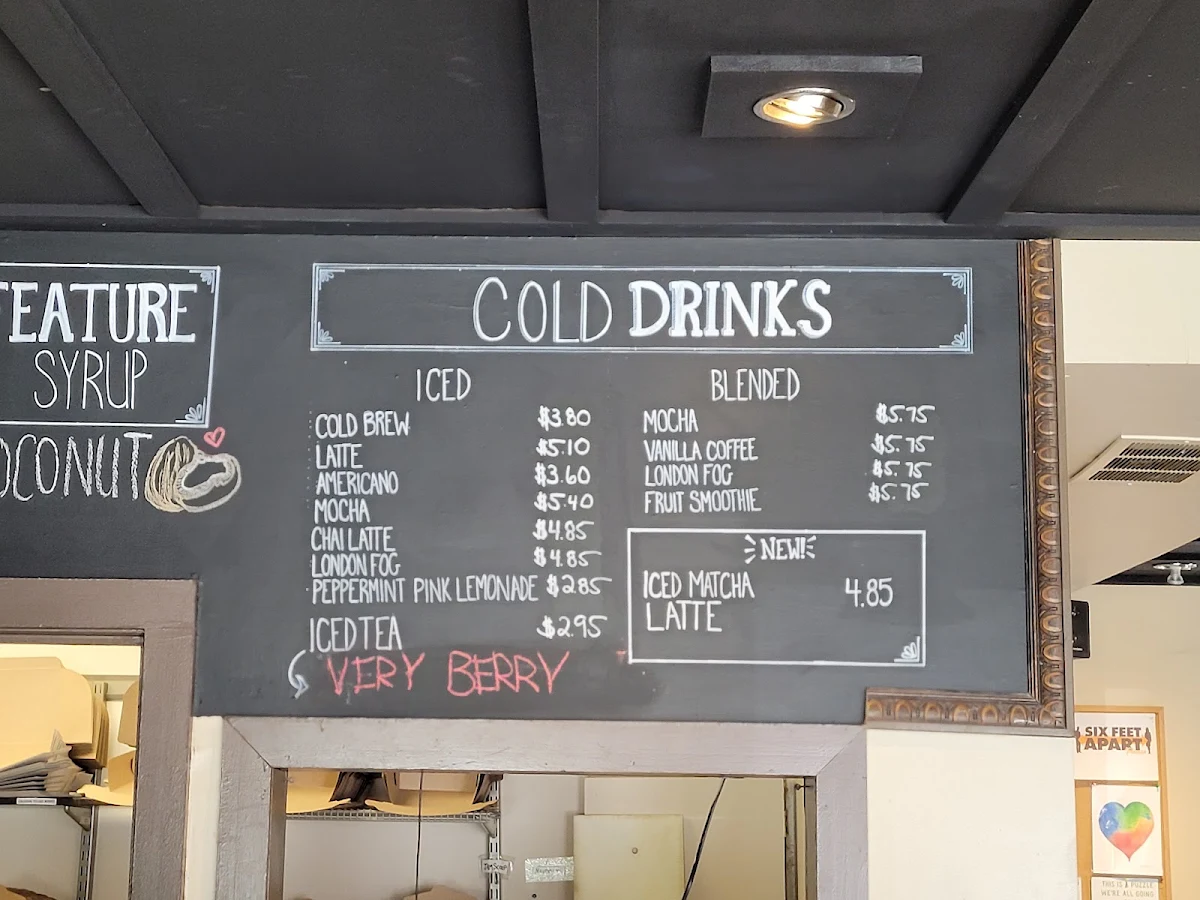 FEATURE
SYRUP
COCONUT
COLD DRINKS
ICED
COLD BREW $3.80
LATTE $5.10
AMERICANO $3.60
MOCHA $5.40
CHAI LATTE $4.85
LONDON FOG $4.85
PEPPERMINT PINK LEMONADE $2.85
ICED TEA $2.95
VERY BERRY
BLENDED
MOCHA $5.75
VANILLA COFFEE $5.75
LONDON FOG $5.75
FRUIT SMOOTHIE $5.75
NEW!
ICED MATCHA 4.85
LATTE
SIX FEET
APART
THIS IS A PUZZLE
WE'RE ALL DOING